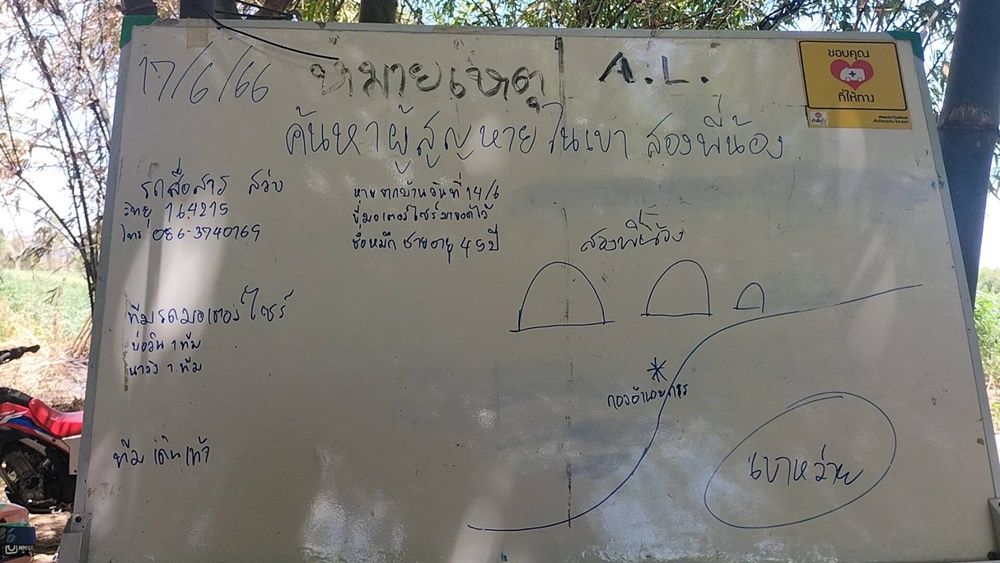 17/6/66 หมายเหตุ A.L.
ขอบคุณ
ที่ให้ทาง
ค้นหาผู้สูญหายในเขา สองพี่น้อง
รถสื่อสาร สว่าง
วิทยุ 164215
โทร 086-3740769
หายจากบ้านวันที่ 14/6
ขี่มอเตอร์ไซร์มาจอดไว้
ชื่อหมึก ชายอายุ 45 ปี
สองพี่น้อง
ทีมรถมอเตอร์ไซร์
บ่อวิน 1 ทีม
นาวัง 1 ทีม
กองอำนวยการ
ทีม เดินเท้า
เขาหว่าย